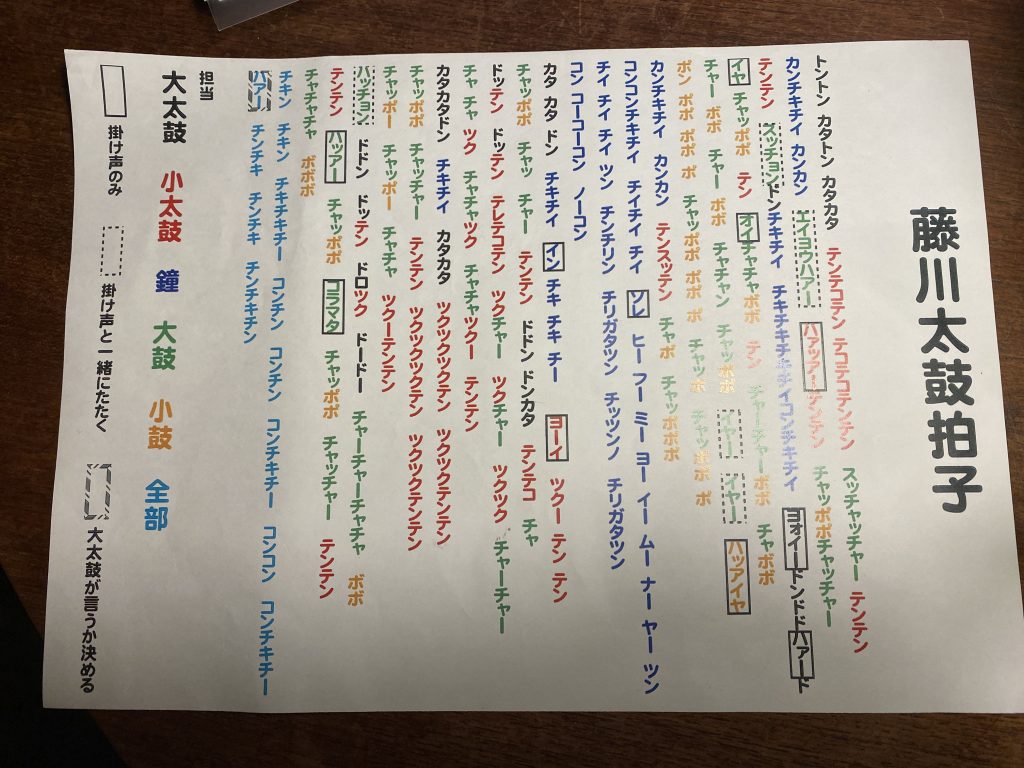 藤川太鼓拍子
トントン カタトン カタカタ テンテコテン テコテコテンテン スッチャッチャー テンテン
カンチキチイ カンカン エイヨウハアー ハアッアー テンテン チャッポポチャッチャー
テンテン スッチョンドンチキチイ チキチキチキチイコンチキチイ ヨオイードンドドハアード
イヤ チャッポポ テン オイ チャチャポポ テン チャーチャーポポ チャポポ
チャー ポポ チャー ポポ チャチャン チャッポポ イヤー イヤー ハッアイヤ
ポン ポポ ポポ ポ チャッポポ ポポ ポ チャッポ チャッポポ ポ
カンチキチイ カンカン テンスッテン チャポ チャッポポポ
コンコンチキチイ チイチイ チイ ソレ ヒー フー ミー ヨー イー ムー ナー ヤー ツン
チイ チイ チイ ツン チンチリン チリガタツン チッツンノ チリガタツン
コン コーコーコン ノーコン
カタ カタ ドン チキチイ イン チキ チキ チー ヨーイ ツクー テン テン
チャッポポ チャッ チャー テンテン ドドン ドンカタ テンテコ チャ
ドッテン ドッテン テレテコテン ツクチャー ツクチャー ツクツク チャーチャー
チャ チャ ツク チャチャツク チャチャツクー テンテン
カタカタドン チキチイ カタカタ ツクツクツクテン ツクツクテンテン
チャッポポ チャッチャー テンテン ツクツクツクテン ツクツクテンテン
チャッポー チャッポー チャチャ ツクーテンテン
バッチョン ドドン ドッテン ドロツク ドードー チャーチャーチャチャ ポポ
テンテン ハッアー チャッポポ コラマタ チャッポポ チャッチャー テンテン
チャチャチャ ポポポ
チキン チキン チキチキチー コンチン コンチン コンチキチー コンコン コンチキチー
ハアー チンチキ チンチキ チンチキチン
担当
大太鼓 小太鼓 鐘 大鼓 小鼓 全部
掛け声のみ 掛け声と一緒にたたく 大太鼓が言うか決める